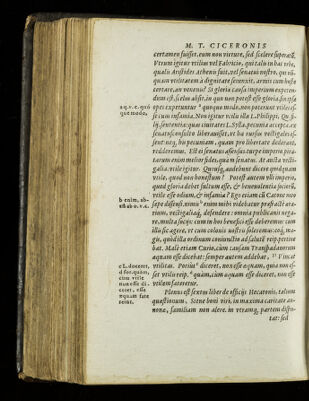 M. T. CICERONIS
certamen fuisset, cum non virtute, sed scelere superatū.
Vtrum igitur vtilius vel Fabricio, qui talis in hac vrbe,
qualis Aristides Athenis fuit, vel senatui nostro, qui nū-
quam vtilitatem à dignitate seiunxit, armis cum hoste
certare, an venenis? Si gloriæ causa imperium expeten-
dum est, scelus absit, in quo non potest esse gloria: sin ipsæ
opes expetuntur quoquo modo, non poterunt vtiles es-
se cum infamia. Non igitur vtilis illa L. Philippi, Qu. fi-
lij, sententia: quas ciuitates L. Sylla, pecunia accepta, ex
senatusconsulto liberauisset, vt hæ rursus vectigales es-
sent: neq; his pecuniam, quam pro libertate dederant,
redderemus. Ei senatus assensus. turpe imperio. pira-
tarum enim melior fides, quàm senatus. At aucta vecti-
galia: vtile igitur. Quousq; audebunt dicere quidquam
vtile, quod non honestum? Potest autem vlli imperio,
quod gloria debet fultum esse, & beneuolentia sociorū,
vtile esse odium, & infamia? Ego etiam cū Catone meo
sæpe dissensi. nimis enim mihi videbatur præfractè æra-
rium, vectigaliaq́; defendere: omnia publicanis nega-
re, multa socijs: cum in hos benefici esse deberemus: cum
illis sic agere, vt cum colonis nostris soleremus: eoq́; ma-
gis, quòd illa ordinum coniunctio ad salutē reip. pertine
bat. Malè etiam Curio, cùm causam Transpadanorum
æquam esse dicebat: semper autem addebat, Vincat
vtilitas. Potius diceret, non esse æquam, quia non es-
set vtilis reip. quàm, cùm æquam esse diceret, non esse
vtilem fateretur.
Plenus est sextus liber de officijs Hecatonis, talium
quæstionum, Sitne boni viri, in maxima caritate an-
nonæ, familiam non alere. in vtramq; partem dispu-
tat: sed
b enim, ab-